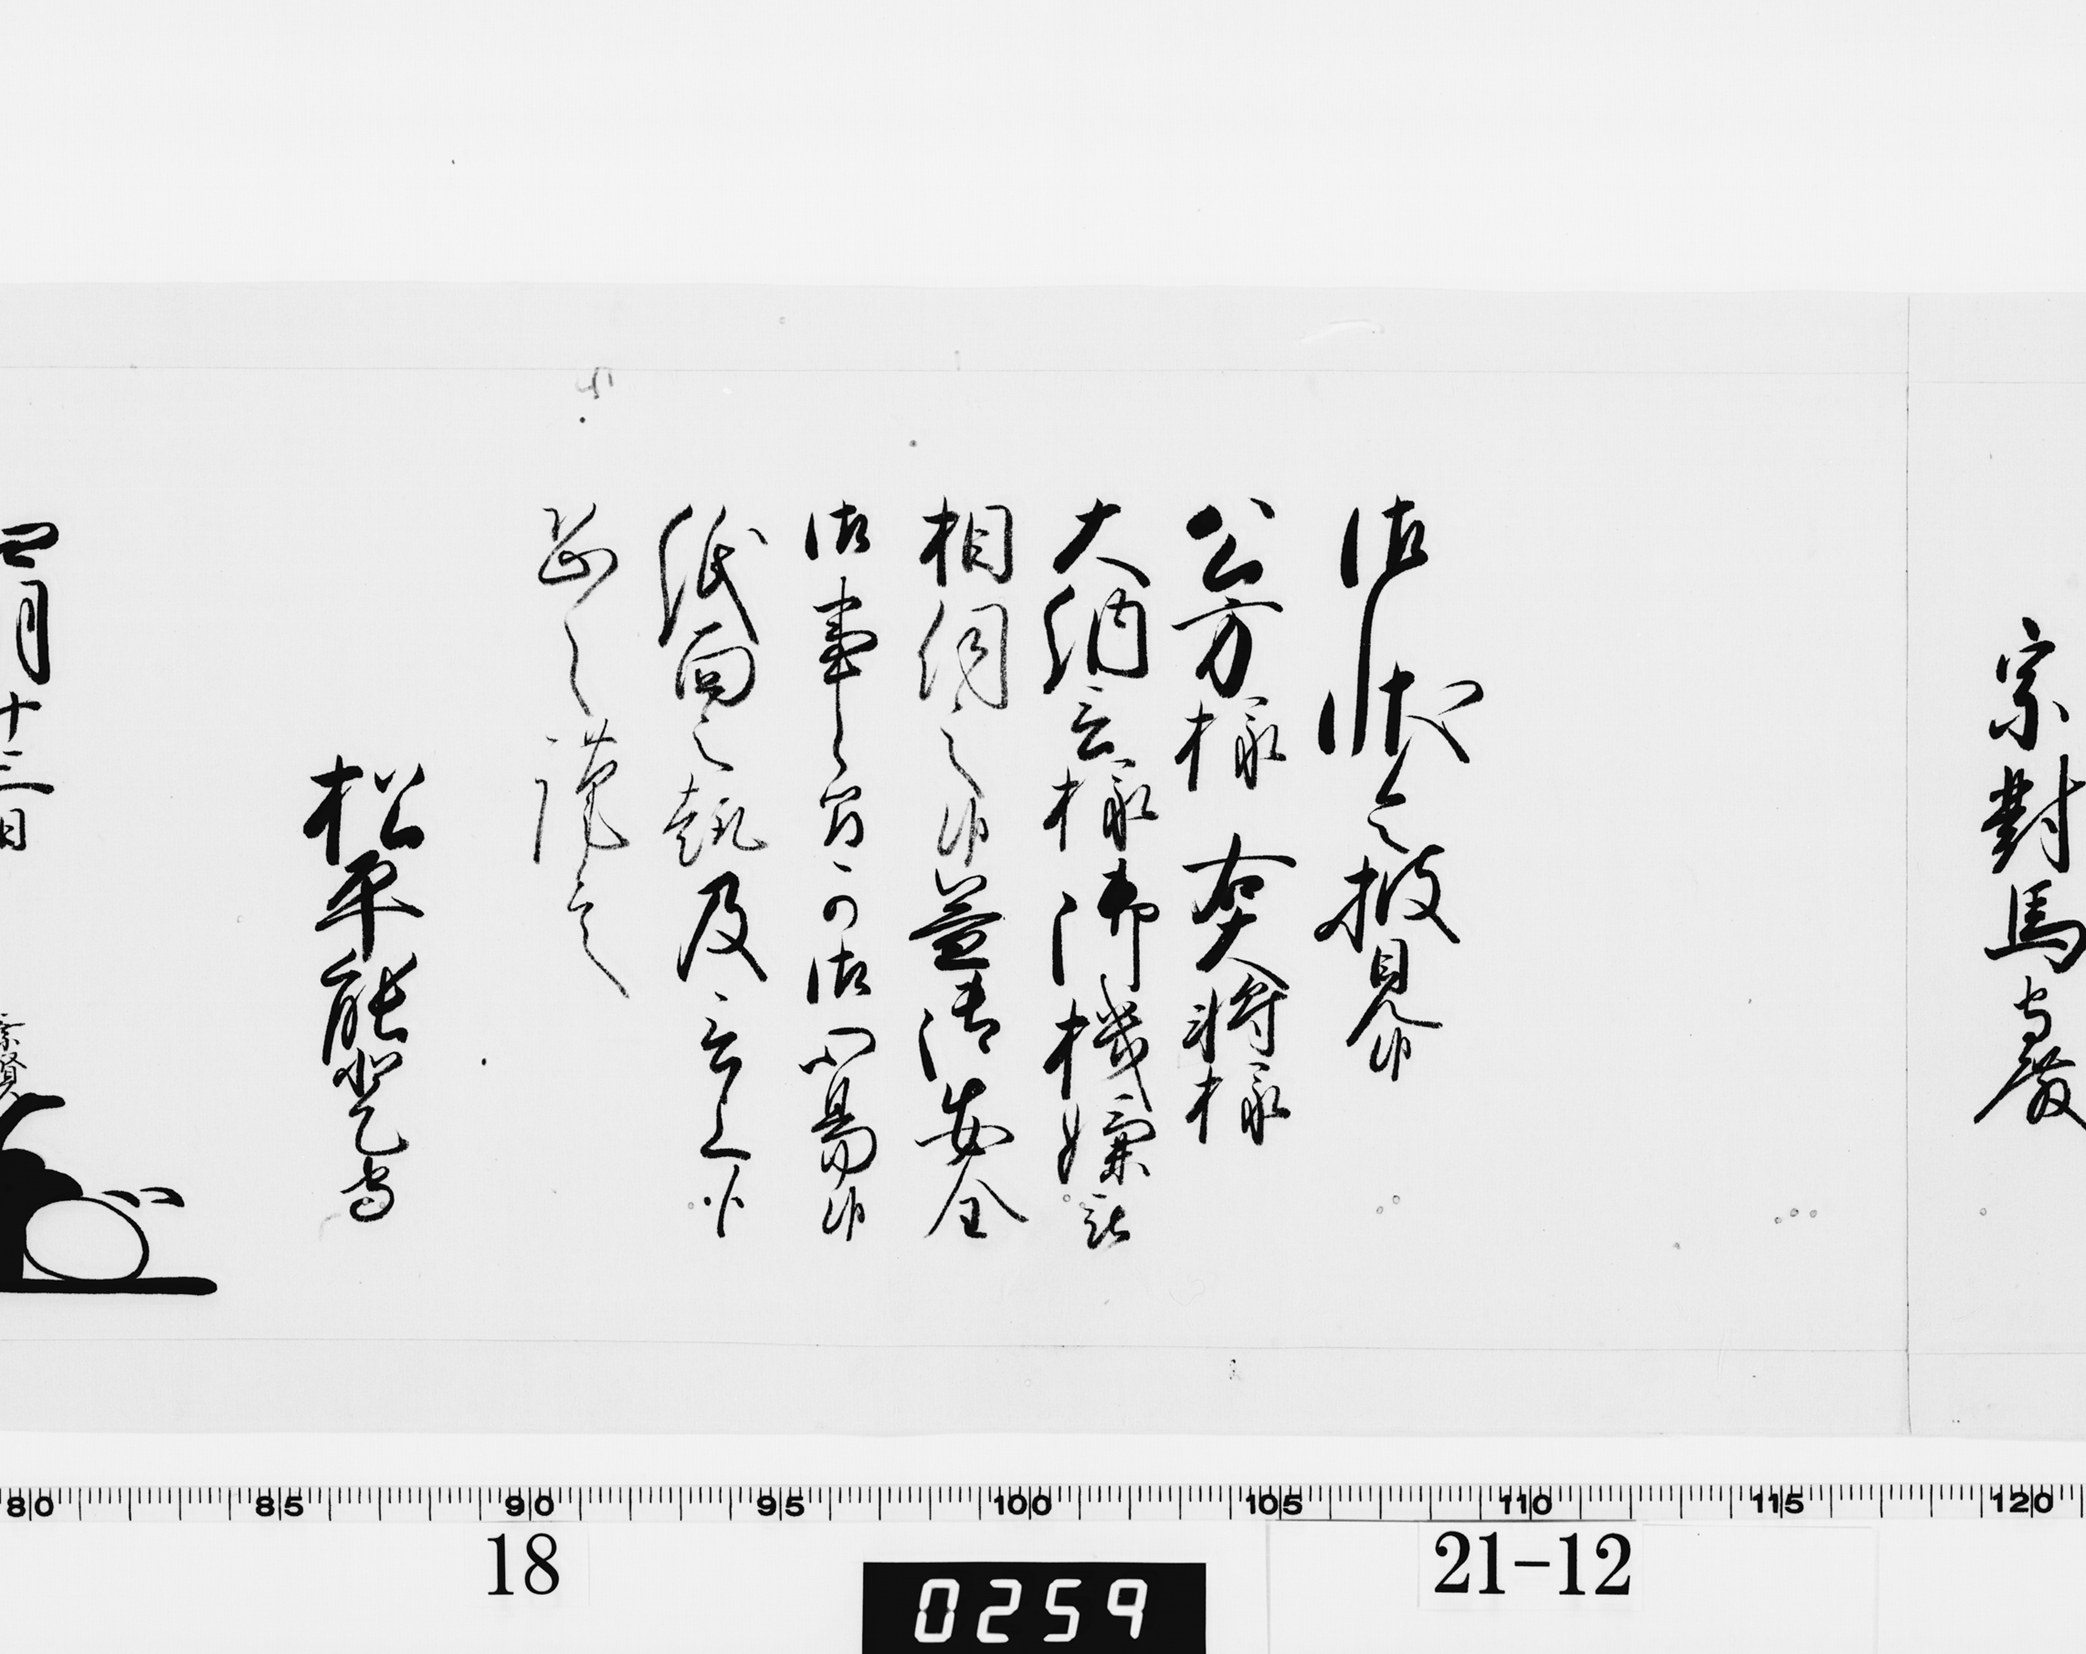 宗對馬守殿
御状令披見候
公方様　右大将様
大納言様御機嫌被
相伺之候益御安全
御事候間可御心易候
紙面之趣及言上候
恐々謹言
松平能登守
四月十三日　乗賢
80 85 90 95 100 105 110 115 120
18
0259
21-12